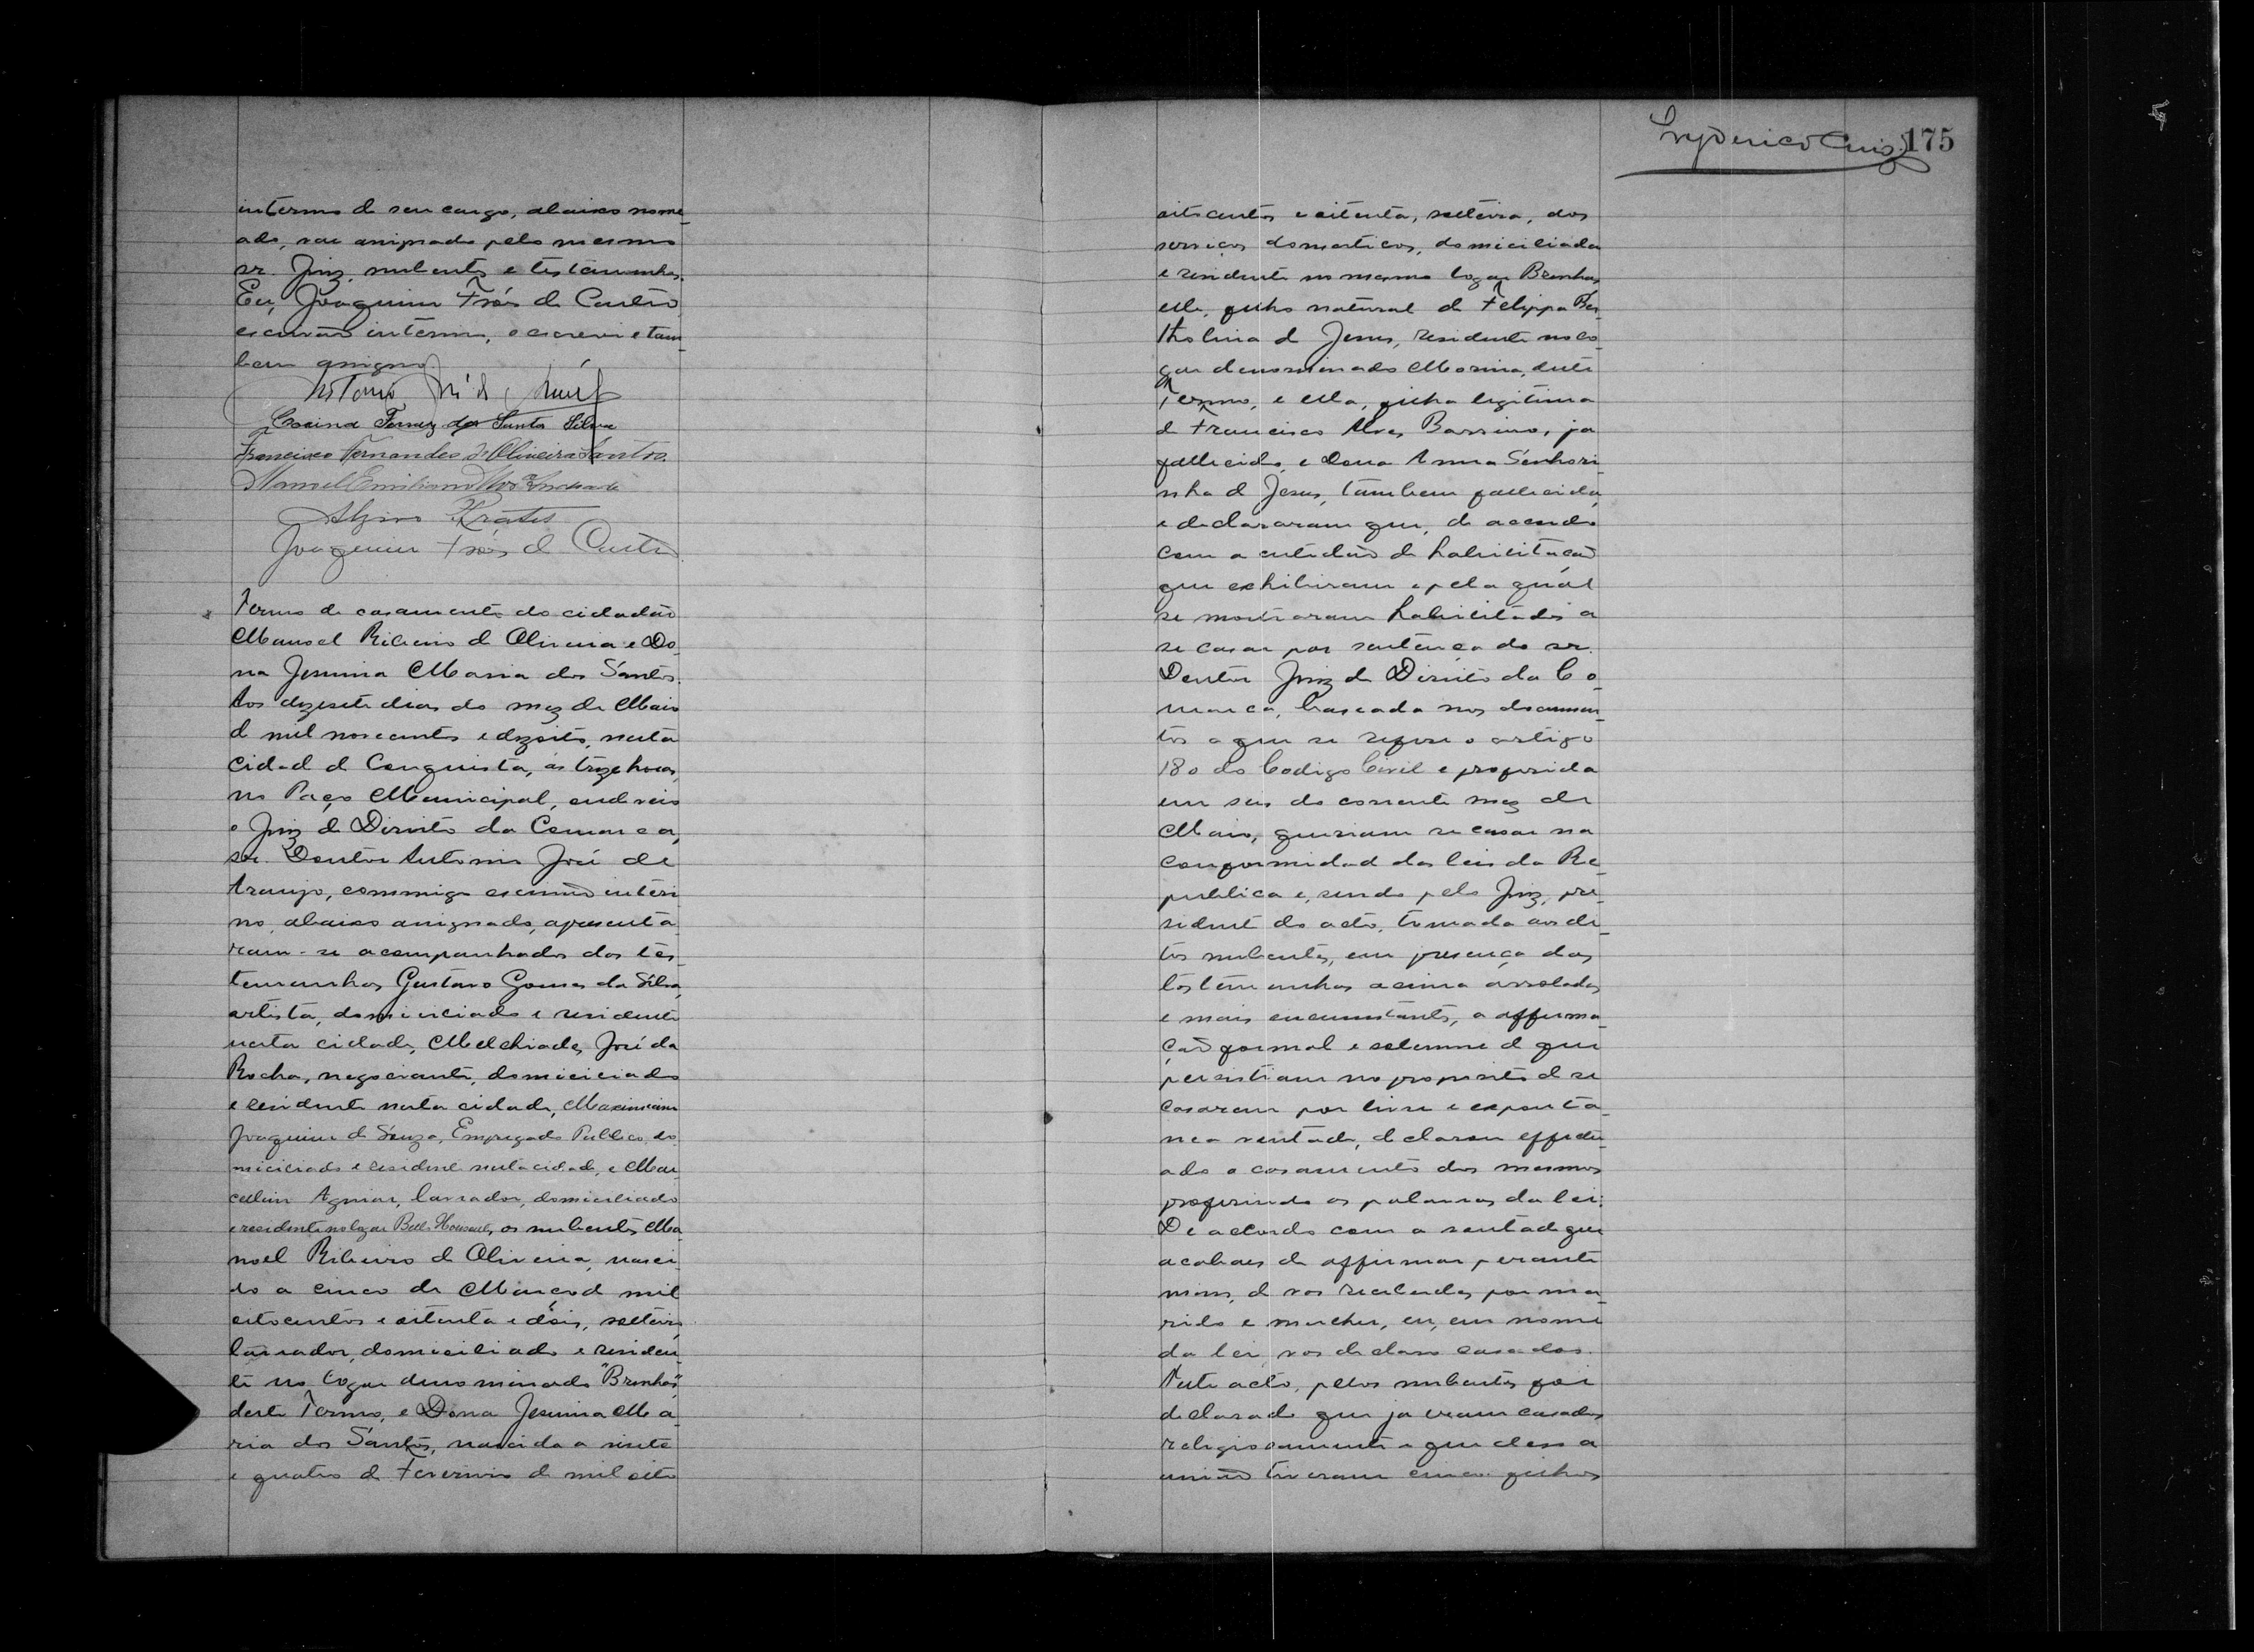 interino de seu cargo, abaixo nome-
ado, vae assignado pelo mesmo
sr. Juiz, nubentes e testemunhas.
Eu, Joaquim Fróes de Castro
escrivão interino, o escrevi e tam-
bem assigno.
Antonio José de Araujo
Ferraz dos Santos Silva
Francisco Fernandes de Oliveira Santos.
Manoel Emiliano
Alziro Prates
Joaquim Fróes de Castro
Termo de casamento do cidadão
Manoel Ribeiro de Oliveira e Do-
na Jesuina Maria dos Santos.
Aos dezesete dias do mez de Maio
de mil novecentos e dezoito, nesta
cidade de Conquista, ás treze horas,
no Paço Municipal, onde veio
o Juiz de Direito da Comarca,
sr. Doutor Antonio José de
Araujo, commigo escrivão interi-
no, abaixo assignado, apresenta-
ram-se acompanhados das tes-
temunhas Gustavo Gomes da Silva,
artista, domiciliado e residente
nesta cidade, Melchiades José da
Rocha, negociante, domiciliado
e residente nesta cidade, Maximiano
Joaquim de Souza, Empregado Publico, do-
miciliado e residente nesta cidade, e Mar-
cellino Aguiar, lavrador, domiciliado
e residente no logar os nubentes Ma-
noel Ribeiro de Oliveira, nasci-
do a cinco de Março de mil
oitocentos e oitenta e dois, solteiro,
lavrador, domiciliado e residen-
te no logar denominado "Brenhas"
deste Termo, e Dona Jesuina Ma-
ria dos Santos, nascida a vinte
e quatro de Fevereiro de mil oito
175
oitocentos e oitenta, solteira, dos
serviços domesticos, domiciliada
e residente no mesmo logar Brenhas,
elle, filho natural de Felippa Ber-
tholina de Jesus, residente no lo-
gar denominado Morina, deste
Termo, e ella, filha legitima
de Francisco Alves Barrino, ja
fallecido, e Dona Anna Senhori-
nha de Jesus, tambem fallecida,
e declararam que, de accordo
com a certidão de habilitação
que exhibiram e pela qual
se mostraram habilitados a
se casar por sentença do sr.
Doutor Juiz de Direito da Co-
marca, baseada nos documen-
tos a que se refere o artigo
180 do Codigo Civil e proferida
em seis do corrente mez de
Maio, queriam se casar na
conformidade das leis da Re-
publica e, sendo pelo Juiz, pre-
sidente do acto, tomada aos di-
tos nubentes, em presença das
testemunhas acima arroladas
e mais circumstantes, a affirma-
ção formal e solemne de que
persistiam no proposito de se
casarem por livre e esponta-
nea vontade, declarou effectu-
ado o casamento dos mesmos
proferindo as palavras da lei:
De accordo com a vontade que
acabaes de affirmar perante
mim, de vos receberdes por ma-
rido e mulher, eu, em nome
da lei, vos declaro casados.
Neste acto, pelos nubentes foi
declarado que ja eram casados
religiosamente e que dessa
união tiveram cinco filhos